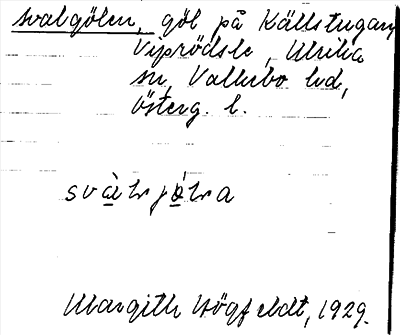 Svalgölen, göl på Källstugan,
Viprödsle, Ulrika
sn, Vallebo hd,
Österg. l.
Margith Högfeldt, 1929.